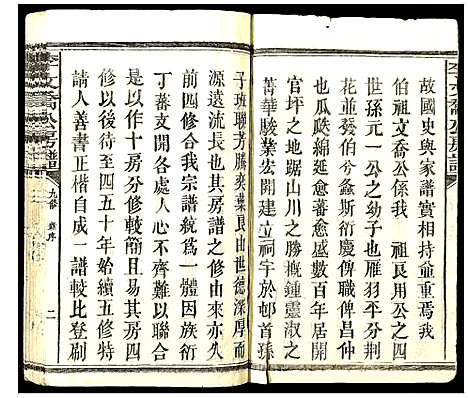 李文喬公房譜
故國史與家譜實相持並重焉我
伯祖文喬公係我　祖艮用公之四
世孫元一公之幼子也雁羽平分荆
花並發伯兮螽斯衍慶俾職俾昌
也瓜瓞綿延愈蕃愈盛數百年居開
官坪之地踞山川之勝概鍾靈淑之
菁華駿業宏開建立祠宇於邨首孫
子班聯芳騰奕葉良由世德深厚而
源遠流長也其房譜之修由來亦久
前四修合我宗譜統爲一體因族衍
丁蕃支開各處人心不齊難以聯合
是以作十房分修較簡且易其房四
修以後待至四五十年始續五修特
請人善書正楷自成一譜較比登刷
李文喬公房譜
九修
序
二